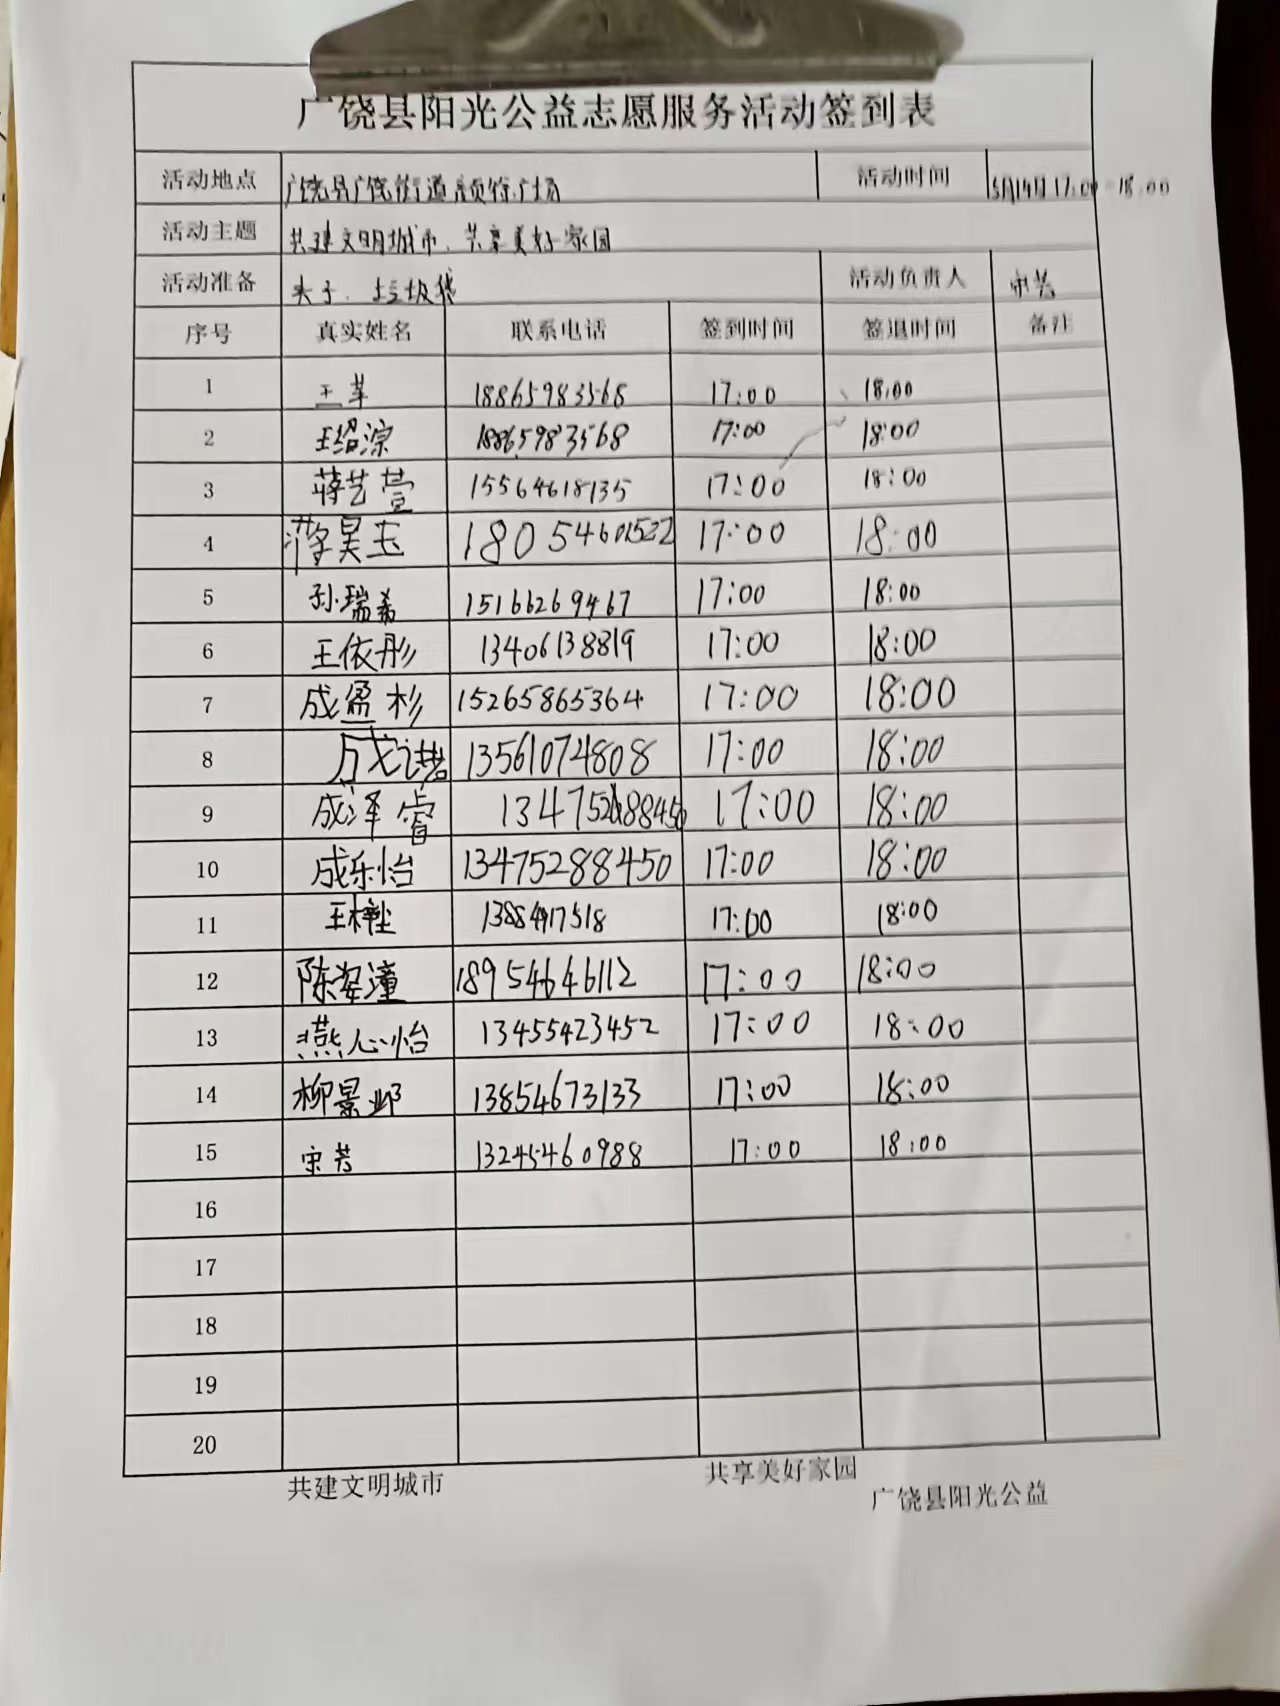 广饶县阳光公益志愿服务活动签到表
活动地点 广饶县广饶街道 广场 活动时间 5月14日 17:00-18:00
活动主题 共建文明城市、共享美好家园
活动准备 夹子、垃圾袋 活动负责人 宋芳
序号 真实姓名 联系电话 签到时间 签退时间 备注
1 王苹 18865983568 17:00 18:00
2 王绍淙 18865983568 17:00 18:00
3 蒋艺萱 15564618135 17:00 18:00
4 昊玉 18054601522 17:00 18:00
5 孙瑞希 15166269467 17:00 18:00
6 王依彤 13406138819 17:00 18:00
7 成盈杉 15265865364 17:00 18:00
8 成诺 13561074808 17:00 18:00
9 成泽睿 17:00 18:00
10 成乐怡 13475288450 17:00 18:00
11 王 17:00 18:00
12 陈姿潼 18954646112 17:00 18:00
13 燕心怡 13455423452 17:00 18:00
14 柳景邺 13854673133 17:00 18:00
15 宋芳 13245460988 17:00 18:00
16
17
18
19
20
共建文明城市 共享美好家园
广饶县阳光公益